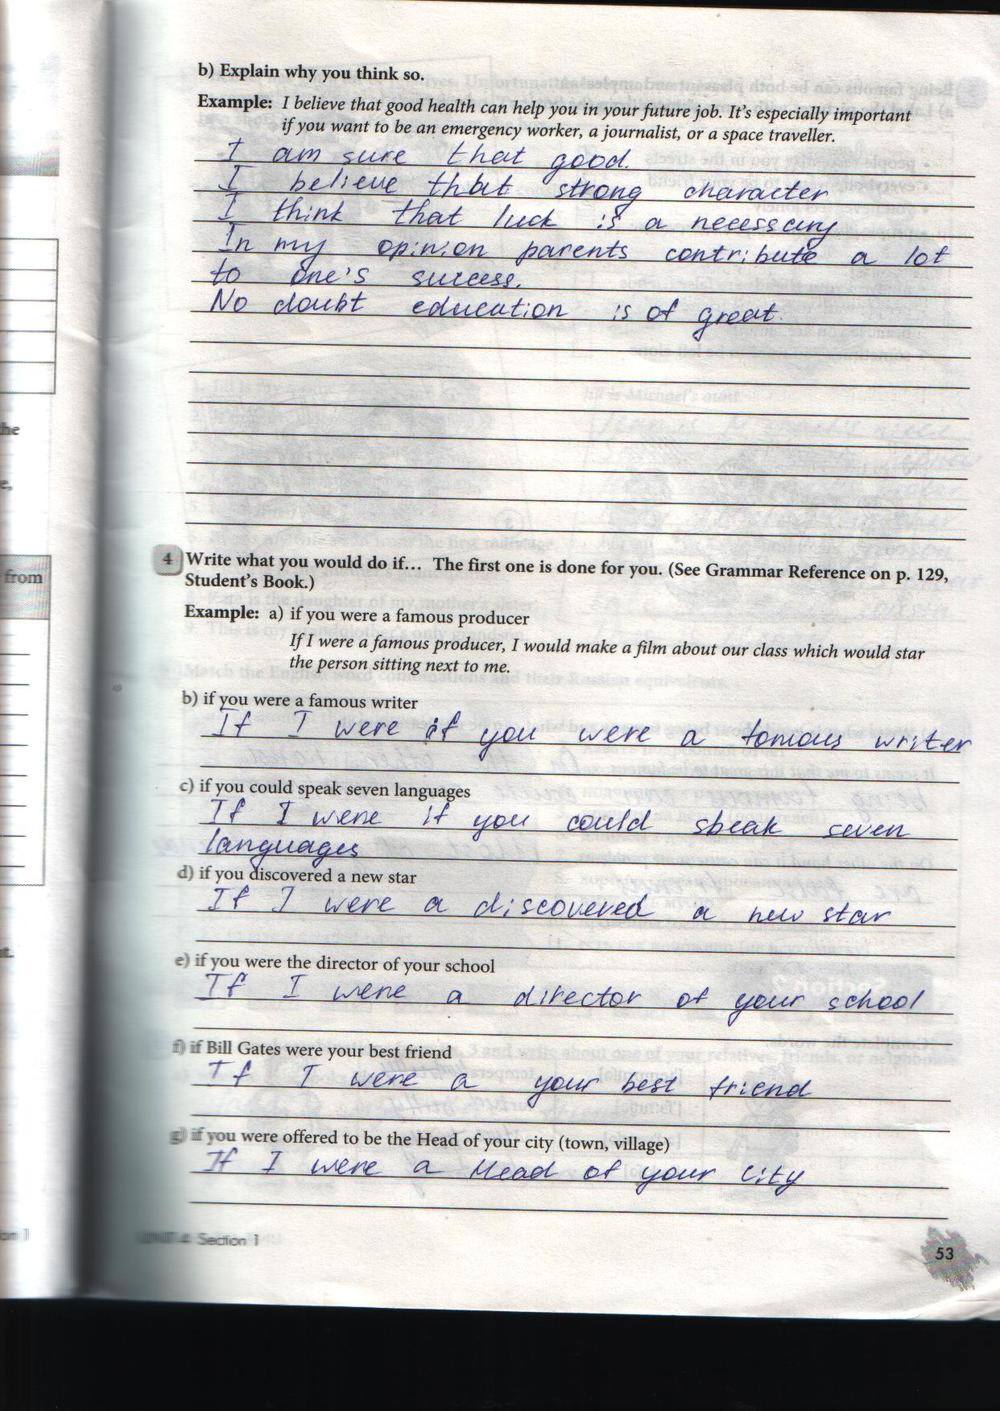 b) Explain why you think so.
Example: I believe that good health can help you in your future job. It's especially important
if you want to be an emergency worker, a journalist, or a space traveller.
I am sure that good.
I believe that strong character
I think that luck is a necessary
In my opinion parents contribute a lot
to one's success.
No doubt education is of great.
4 Write what you would do if... The first one is done for you. (See Grammar Reference on p. 129,
Student's Book.)
Example: a) if you were a famous producer
If I were a famous producer, I would make a film about our class which would star
the person sitting next to me.
b) if you were a famous writer
If I were if you were a fomous writer
c) if you could speak seven languages
If I were if you could speak seven
languages
d) if you discovered a new star
If I were a discovered a new star
e) if you were the director of your school
If I were a director of your school
f) if Bill Gates were your best friend
If I were a your best friend
g) if you were offered to be the Head of your city (town, village)
If I were a Head of your city
UNIT 4 Section 1
53
he
e,
from